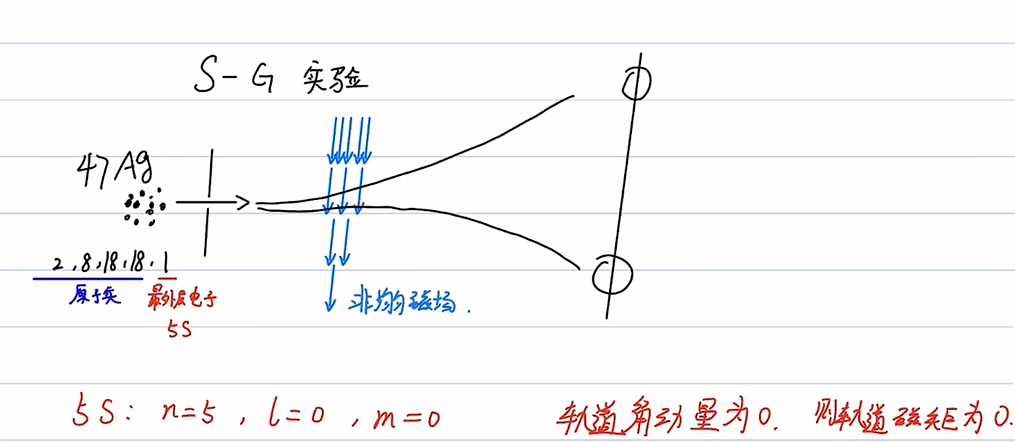 S-G 实验
47Ag
2,8,18,18,1
原子实 最外层电子
5S
非均匀磁场.
5S: n=5, l=0, m=0 轨道角动量为0. 则轨道磁矩为0.